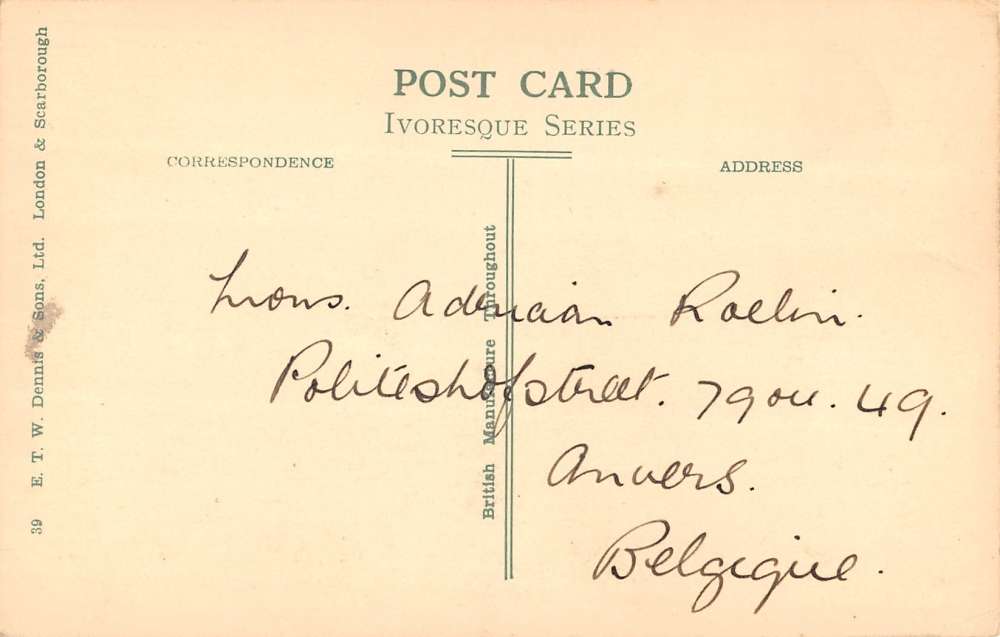 POST CARD
IVORESQUE SERIES
CORRESPONDENCE
ADDRESS
39 E. T. W. Dennis & Sons, Ltd. London & Scarborough
British Manufacture Throughout
Mons. Adriaan Roelin.
Politeshofstreet. 79 ou. 49.
Anvers.
Belgique.